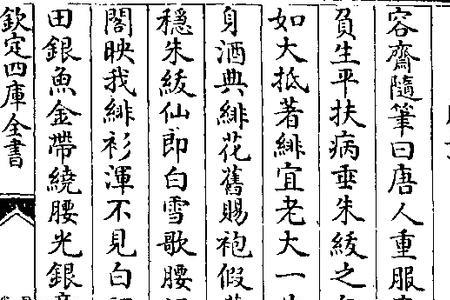 容齋隨筆曰唐人重服
負生平扶病垂朱綬之
如大抵著緋宜老大一
身酒典緋花舊賜袍假
穩朱紱仙郎白雪歌腰
閣映我緋衫渾不見白
田銀魚金帶繞腰光銀
欽定四庫全書